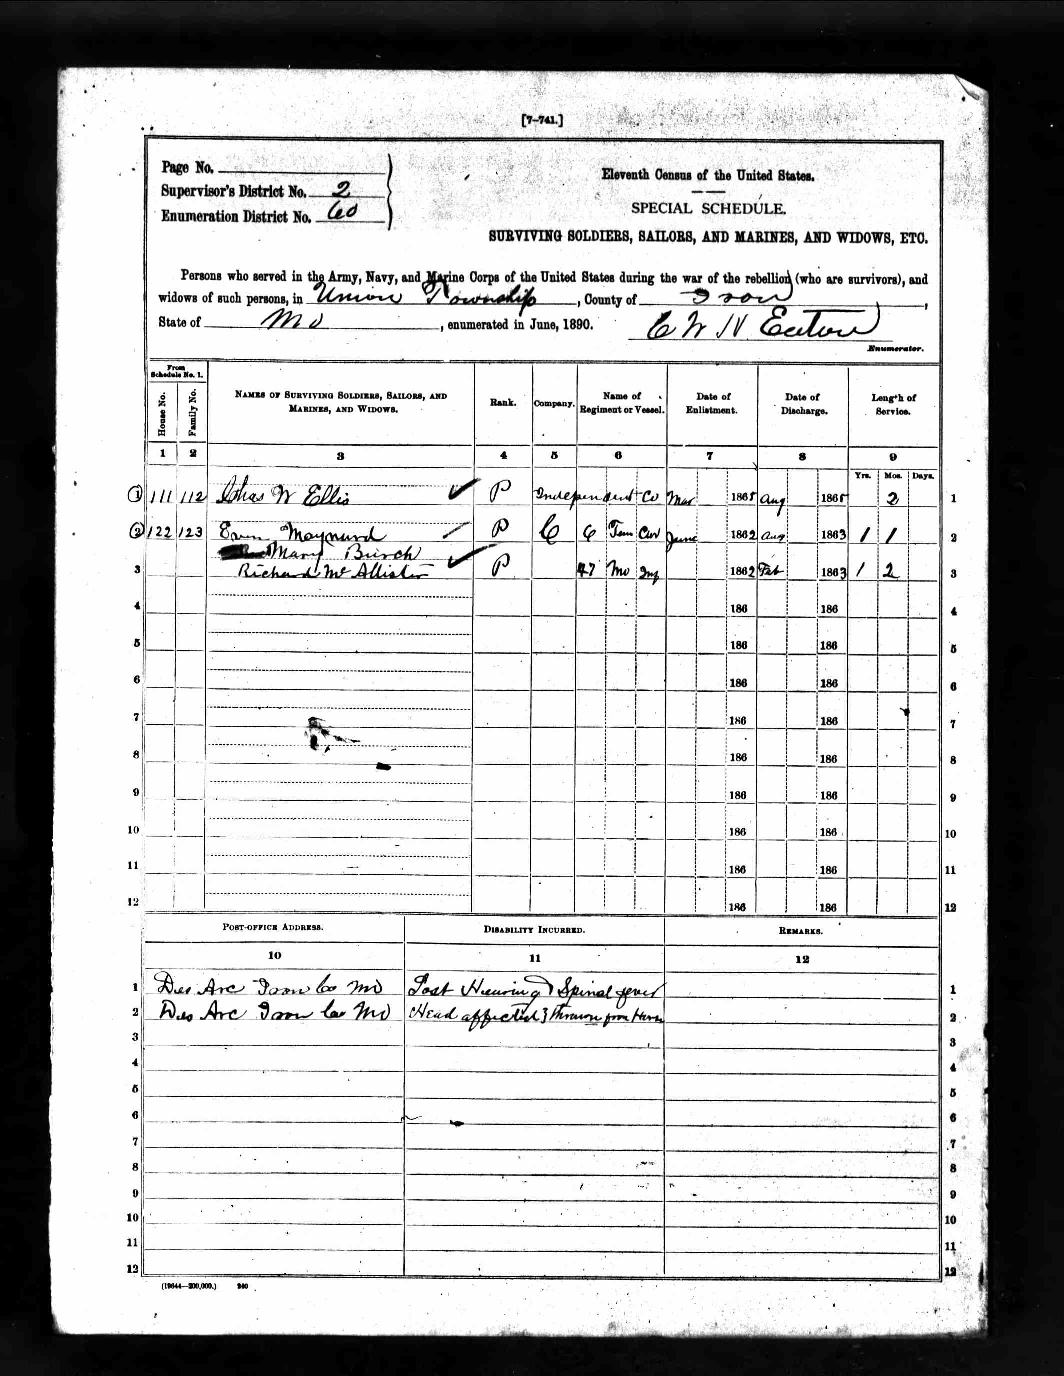 [7-741.]
Page No.
Supervisor's District No. 2
Enumeration District No. 60
Eleventh Census of the United States.
SPECIAL SCHEDULE.
SURVIVING SOLDIERS, SAILORS, AND MARINES, AND WIDOWS, ETC.
Persons who served in the Army, Navy, and Marine Corps of the United States during the war of the rebellion (who are survivors), and
widows of such persons, in Union Township, County of Iron,
State of Mo, enumerated in June, 1890. C W N Eaton
Enumerator.
From Schedule No. 1.
House No. Family No. NAMES OF SURVIVING SOLDIERS, SAILORS, AND MARINES, AND WIDOWS. Rank. Company. Name of Regiment or Vessel. Date of Enlistment. Date of Discharge. Length of Service.
1 2 3 4 5 6 7 8 9
Yrs. Mos. Days.
1 111 112 Chas W Ellis P Independent Co Mar 1865 Aug 1865 2 1
2 122 123 Maynard P C 6 Tenn Cav June 1862 Aug 1863 1 1 2
Mary Burch
3 Richard McAllister P 47 Mo Inf 1862 Feb 1863 1 2 3
4 186 186 4
5 186 186 5
6 186 186 6
7 186 186 7
8 186 186 8
9 186 186 9
10 186 186 10
11 186 186 11
12 186 186 12
POST-OFFICE ADDRESS. DISABILITY INCURRED. REMARKS.
10 11 12
1 Des Arc Iron Co Mo Lost Hearing Spinal fever 1
2 Des Arc Iron Co Mo Head affected thrown from Horse 2
3 3
4 4
5 5
6 6
7 7
8 8
9 9
10 10
11 11
12 12
(19644—200,000.) 940